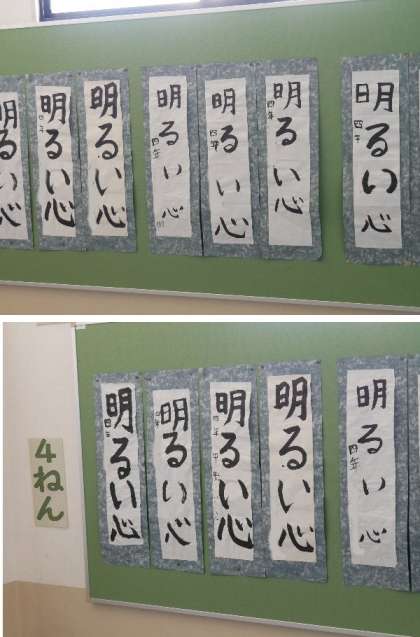 明るい心
明るい心
四年
明るい心
明るい心
四年
明るい心
四年
明るい心
四年
明るい心
四年
4ねん
明るい心
四年
明るい心
四年
明るい心
四年
明るい心
明るい心
四年